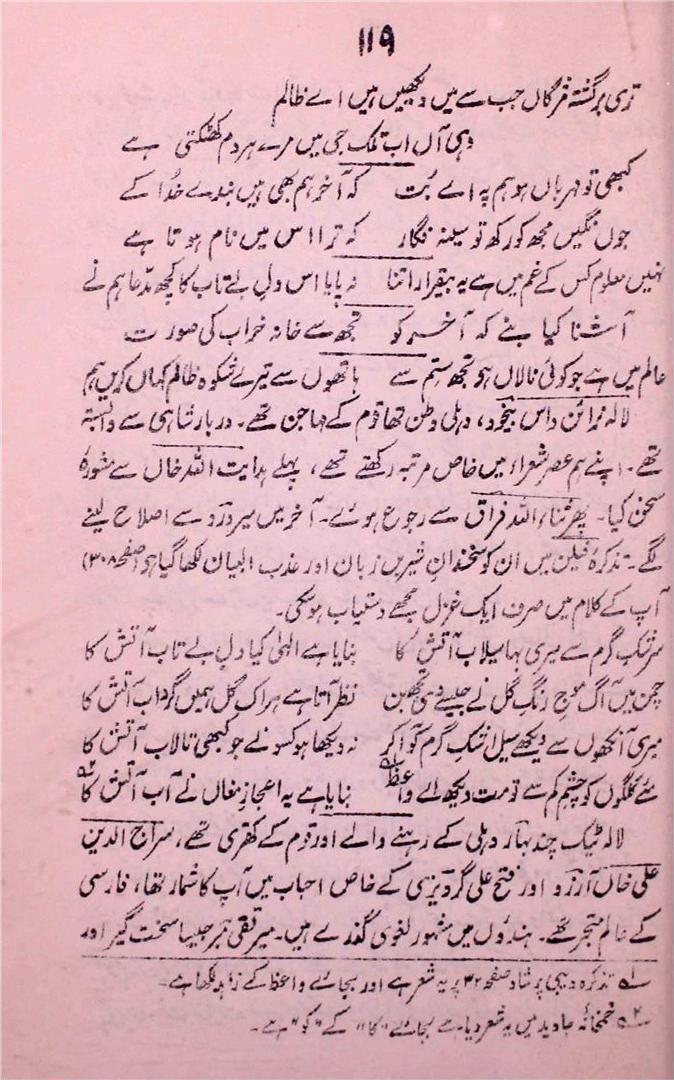 ۱۱۹
تری برگشتہ مژگاں جب سے میں دیکھیں ہیں اے ظالم
وہی آں اب تلک جی میں مرے ہر دم کھٹکتی ہے
کبھی تو مہرباں ہو ہم پہ اے بُت کہ آخر ہم بھی ہیں بندے خدا کے
جوں نگیں مجھ کو رکھ تو سینہ فگار کہ ترا اس میں نام ہوتا ہے
نہیں معلوم کس کے غم میں ہے یہ بیقرار اتنا نہ پایا اس دلِ بے تاب کا کچھ مدّعا ہم نے
آشنا کیا بنے کہ آخر کو تجھ سے خانہ خراب کی صورت
عالم میں ہے جو کوئی نالاں ہو تجھ ستم سے ہاتھوں سے تیرے شکوہ ظالم کہاں کریں ہم
لالہ نرائن داس بیخود، دہلی وطن تھا قوم کے مہاجن تھے۔ دربار شاہی سے وابستہ
تھے۔ اپنے ہم عصر شعراء میں خاص مرتبہ رکھتے تھے، پہلے ہدایت اللہ خاں سے مشورہ
سخن کیا۔ پھر ثناء اللہ فراق سے رجوع ہوئے۔ آخر میں میر درد سے اصلاح لینے
لگے۔ تذکرۂ فیلن میں ان کو سخندانِ شیریں زبان اور عذب البیان لکھا گیا ہے (صفحہ ۳۰۸)
آپ کے کلام میں صرف ایک غزل مجھے دستیاب ہو سکی۔
سرشکِ گرم سے میری بہا سیلاب آتش کا بنایا ہے الٰہی کیا دلِ بے تاب آتش کا
چمن میں آگ موجِ رنگِ گل نے جیسے دی تجھ بن نظر آتا ہے ہر اک گل ہمیں گرداب آتش کا
میری آنکھوں سے دیکھے سیلِ اشکِ گرم کو آکر نہ دیکھا ہو کسو نے جو کبھی تالاب آتش کا
مئے گلگوں کو چشمِ کم سے تو مت دیکھ اے واعظ۱؎ بنایا ہے یہ اعجازِ مغاں نے آب آتش کا۲؎
لالہ ٹیک چند بہار دہلی کے رہنے والے اور قوم کے کھتری تھے، سراج الدین
علی خاں آرزو اور فتح علی گردیزی کے خاص احباب میں آپ کا شمار تھا، فارسی
کے عالم متبحر تھے۔ ہندوں میں مشہور لغوی گذرے ہیں۔ میر تقی میر جیسا سخت گیر اور
۱؎ تذکرہ دیبی پرشاد صفحہ ۳۲ پر یہ شعر ہے اور بجائے واعظ کے زاہد لکھا ہے۔
۲؎ خمخانۂ جاوید میں یہ شعر دیا ہے بجائے "کا" کے "کو" ہے۔